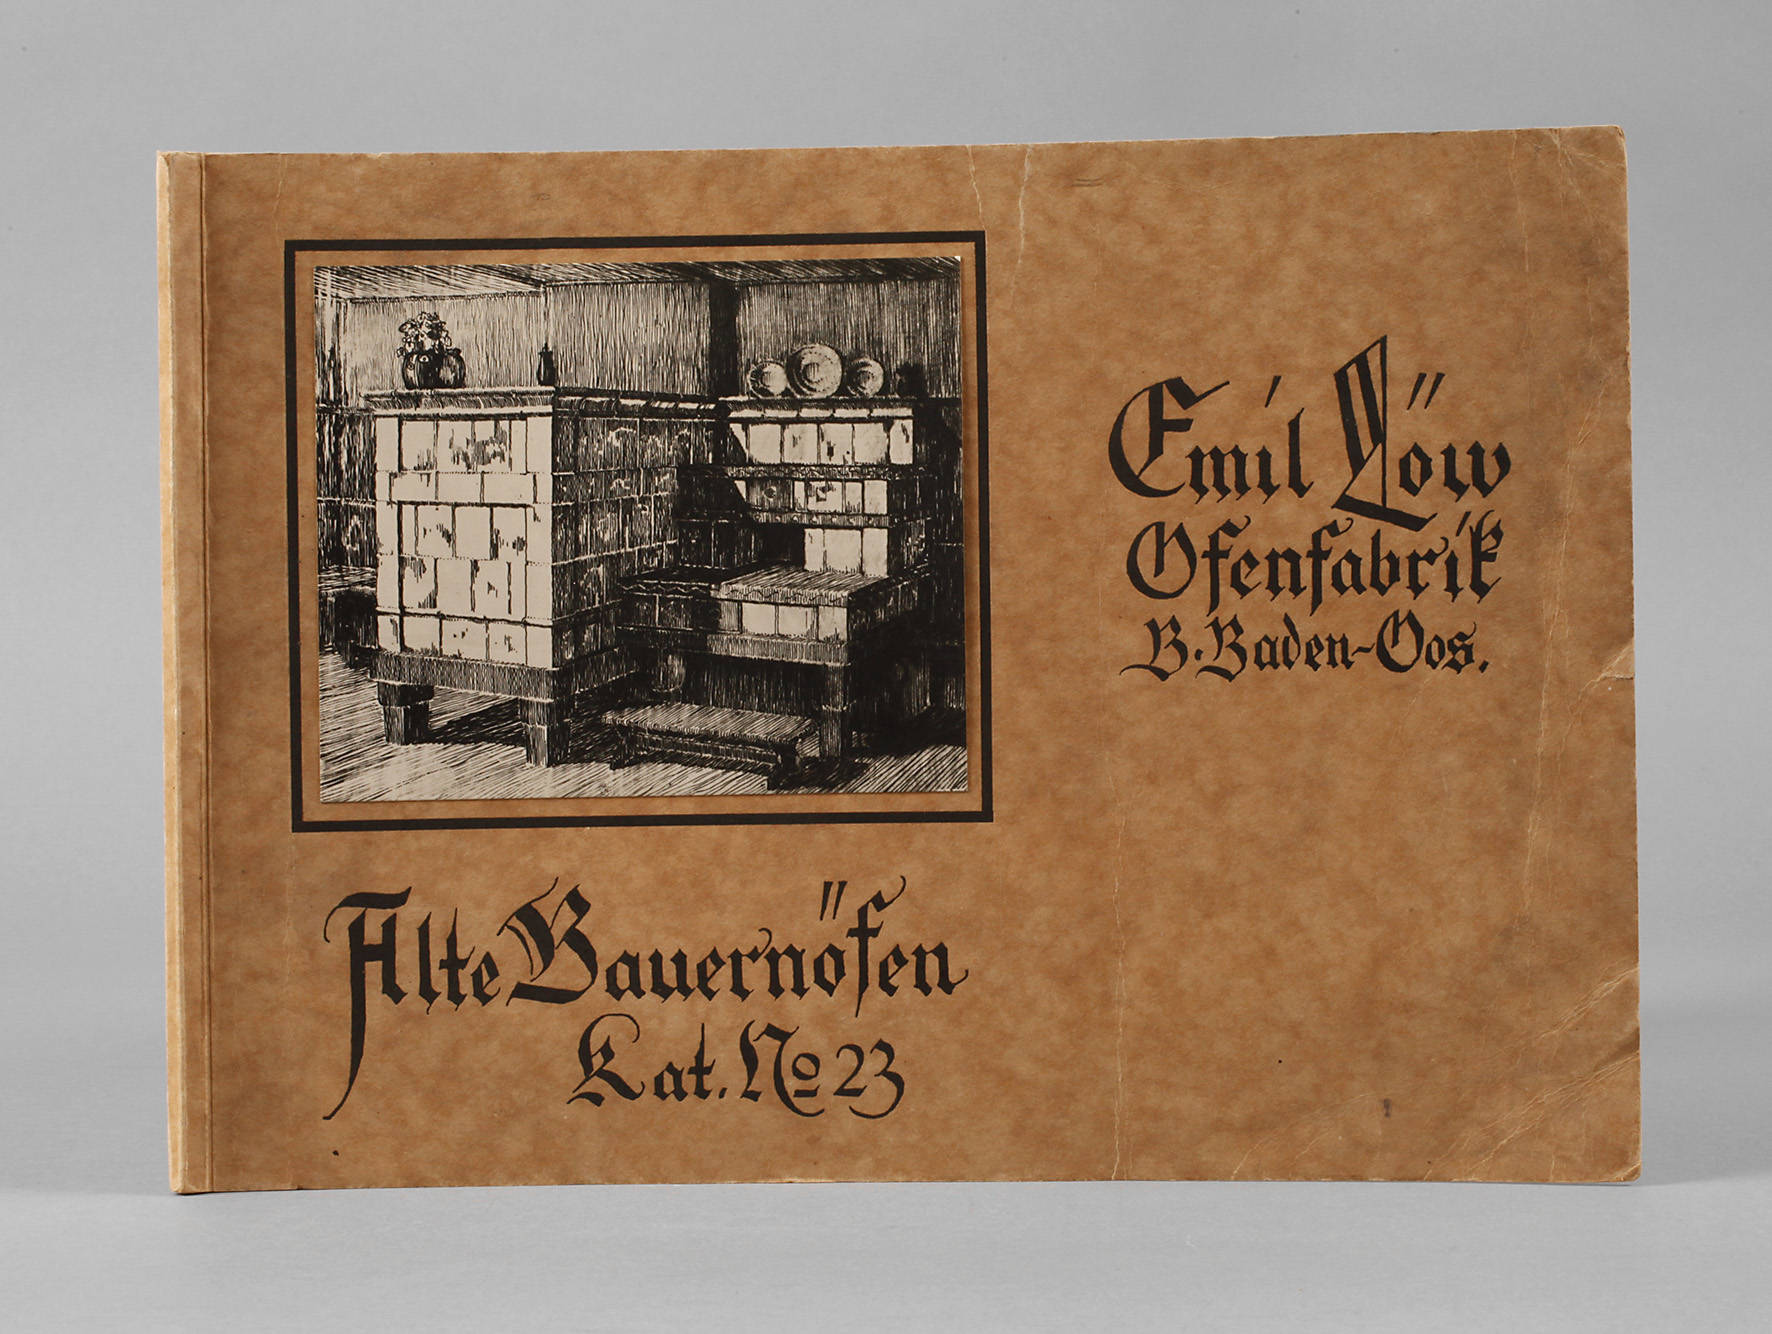 Emil Löw
Ofenfabrik
B.Baden-Oos.
Alte Bauernöfen
Kat. No 23